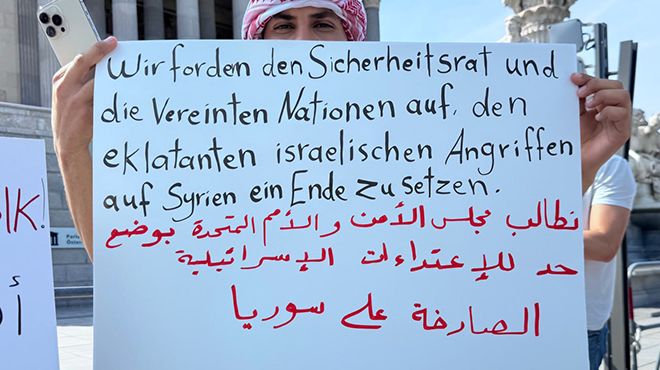 Wir forden den Sicherheitsrat und
die Vereinten Nationen auf, den
eklatanten israelischen Angriffen
auf Syrien ein Ende zu setzen.
نطالب مجلس الأمن و الأمم المتحدة بوضع
حد للإعتداءات الإسرائيلية
الصارخة على سوريا
lk!